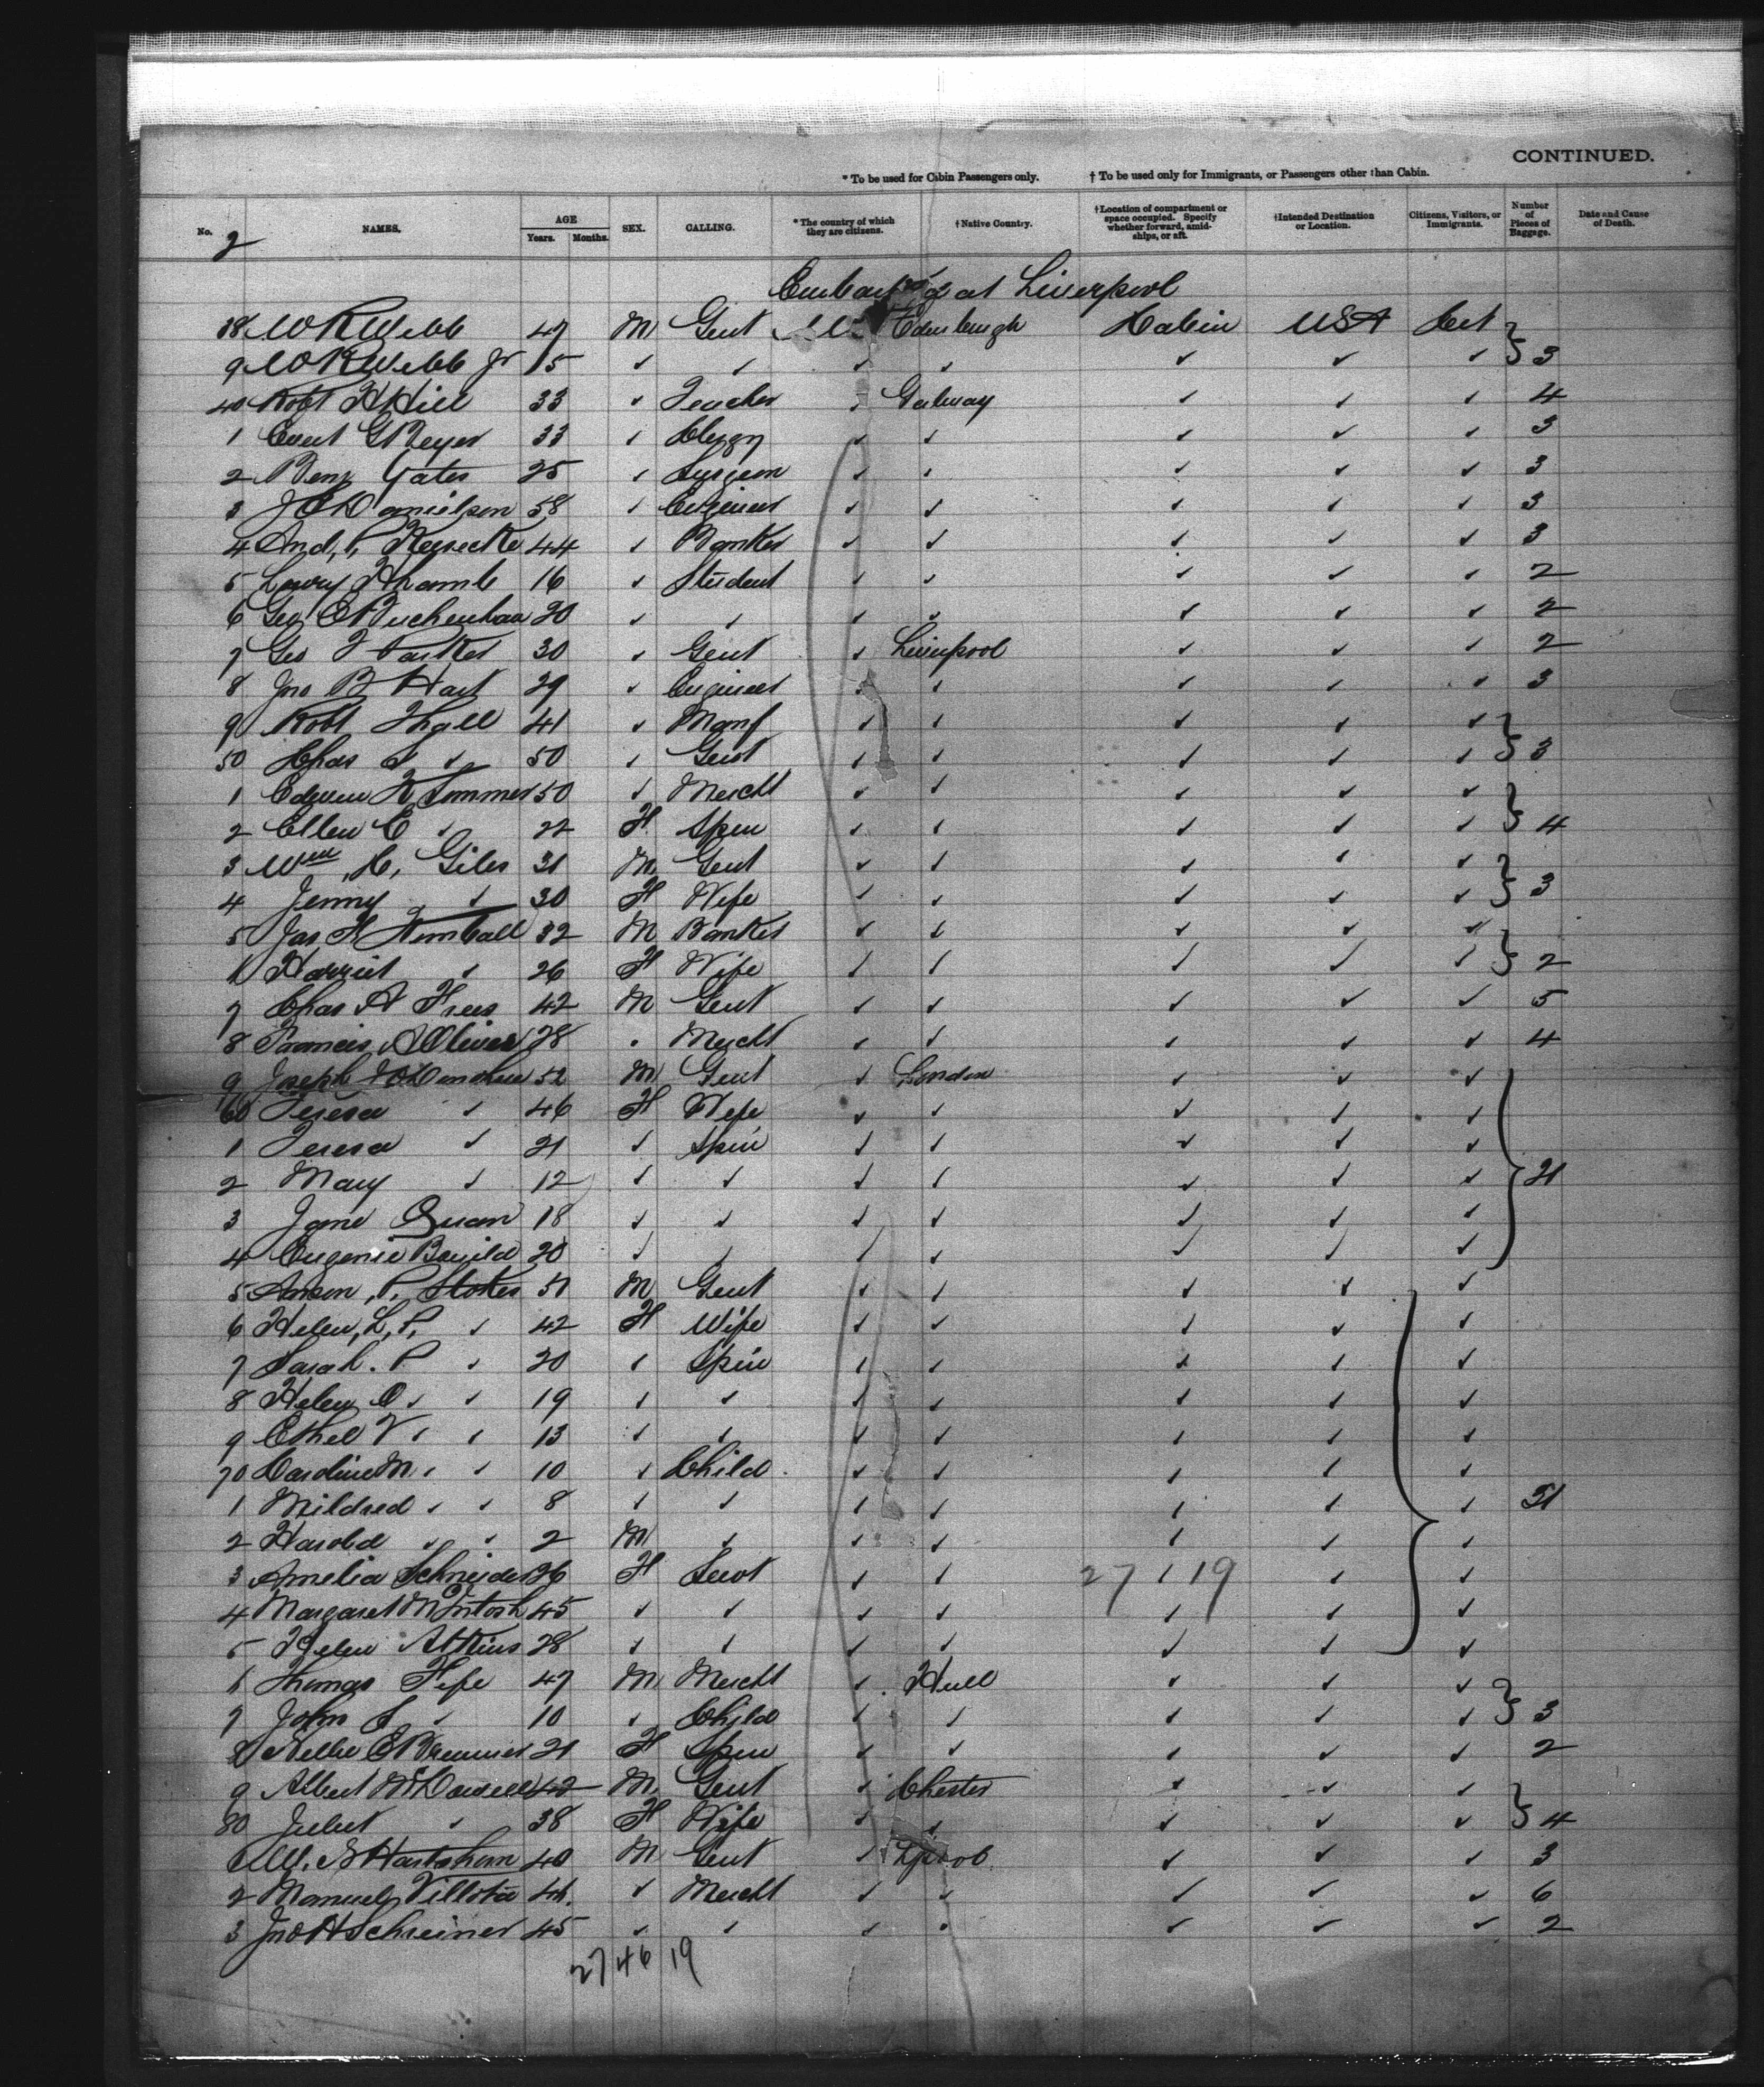 CONTINUED.
* To be used for Cabin Passengers only. † To be used only for Immigrants, or Passengers other than Cabin.
No. NAMES. AGE Years. Months. SEX. CALLING. * The country of which they are citizens. † Native Country. † Location of compartment or space occupied. Specify whether forward, amidships, or aft. † Intended Destination or Location. Citizens, Visitors, or Immigrants. Number of Pieces of Baggage. Date and Cause of Death.
2
at Liverpool
38 W R Webb 47 M Gent Edenburgh Cabin USA
9 W R Webb Jr 15 ✓ ✓ ✓ ✓ ✓ ✓ ✓ 3
40 Robt H Hill 33 ✓ Teacher ✓ Galway ✓ ✓ ✓ 4
1 33 ✓ Clergy ✓ ✓ ✓ ✓ ✓ 3
2 Benj Yates 25 ✓ Surgeon ✓ ✓ ✓ ✓ ✓ 3
3 J Danielson 58 ✓ Engineer ✓ ✓ ✓ ✓ ✓ 3
4 And. P. 44 ✓ Banker ✓ ✓ ✓ ✓ ✓ 3
5 16 ✓ Student ✓ ✓ ✓ ✓ ✓ 2
6 Geo E 20 ✓ ✓ ✓ ✓ ✓ ✓ ✓ 2
7 Geo Parker 30 ✓ Gent ✓ Liverpool ✓ ✓ ✓ 2
8 Jno B Hart 29 ✓ Engineer ✓ ✓ ✓ ✓ ✓ 3
9 Robt 41 ✓ Manf ✓ ✓ ✓ ✓ ✓
50 Chas ✓ 50 ✓ Gent ✓ ✓ ✓ ✓ ✓ 3
1 50 ✓ Mercht ✓ ✓ ✓ ✓ ✓
2 Ellen E ✓ 22 F Spin ✓ ✓ ✓ ✓ ✓ 4
3 Wm C. Giles 31 M Gent ✓ ✓ ✓ ✓ ✓
4 Jenny ✓ 30 F Wife ✓ ✓ ✓ ✓ ✓ 3
5 Jas Kimball 32 M Banker ✓ ✓ ✓ ✓ ✓
6 Harriet ✓ 26 F Wife ✓ ✓ ✓ ✓ ✓ 2
7 Chas A Frees 42 M Gent ✓ ✓ ✓ ✓ ✓ 5
8 Francis A Oliver 28 Mercht ✓ ✓ ✓ ✓ ✓ 4
9 Joseph 52 M Gent ✓ London ✓ ✓ ✓
60 Teresa ✓ 46 F Wife ✓ ✓ ✓ ✓ ✓
1 Teresa ✓ 21 ✓ Spin ✓ ✓ ✓ ✓ ✓
2 Mary ✓ 12 ✓ ✓ ✓ ✓ ✓ ✓ ✓ 21
3 Jane 18 ✓ ✓ ✓ ✓ ✓ ✓ ✓
4 Eugenie 20 ✓ ✓ ✓ ✓ ✓ ✓ ✓
5 Anson, P. Stokes 51 M Gent ✓ ✓ ✓ ✓ ✓
6 Helen, L, P, ✓ 42 F Wife ✓ ✓ ✓ ✓ ✓
7 Sarah. P ✓ 20 ✓ Spin ✓ ✓ ✓ ✓ ✓
8 Helen O ✓ ✓ 19 ✓ ✓ ✓ ✓ ✓ ✓ ✓
9 Ethel V ✓ ✓ 13 ✓ ✓ ✓ ✓ ✓ ✓ ✓
70 Caroline M ✓ ✓ 10 ✓ Child ✓ ✓ ✓ ✓ ✓
1 Mildred ✓ ✓ 8 ✓ ✓ ✓ ✓ ✓ ✓ ✓ 51
2 Harold ✓ ✓ 2 M ✓ ✓ ✓ ✓ ✓ ✓
3 Amelia Schneider 26 F Servt ✓ ✓ 27 ✓ 19 ✓ ✓
4 Margaret McIntosh 45 ✓ ✓ ✓ ✓ ✓ ✓
5 Helen Atkins 28 ✓ ✓ ✓ ✓ ✓ ✓ ✓
6 Thomas Fife 47 M Mercht ✓ Hull ✓ ✓ ✓
7 John S ✓ 10 ✓ Child ✓ ✓ ✓ ✓ ✓ 3
8 Nellie E 21 F Spin ✓ ✓ ✓ ✓ ✓ 2
9 Albert McDowell 42 M Gent ✓ Chester ✓ ✓ ✓
80 Juliet ✓ 38 F Wife ✓ ✓ ✓ ✓ ✓ 4
1 W. Hartshorn 40 M Gent ✓ Lpool ✓ ✓ ✓ 3
2 Manuel Villota 44 ✓ Mercht ✓ ✓ ✓ ✓ ✓ 6
3 Jno H Schreiner 45 ✓ ✓ ✓ ✓ ✓ ✓ ✓ 2
27 46 19